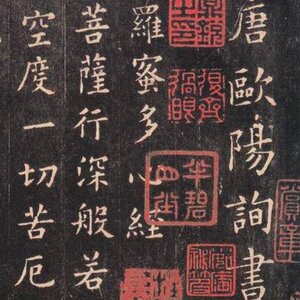 唐歐陽詢書
羅蜜多心經
菩薩行深般若
空度一切苦厄